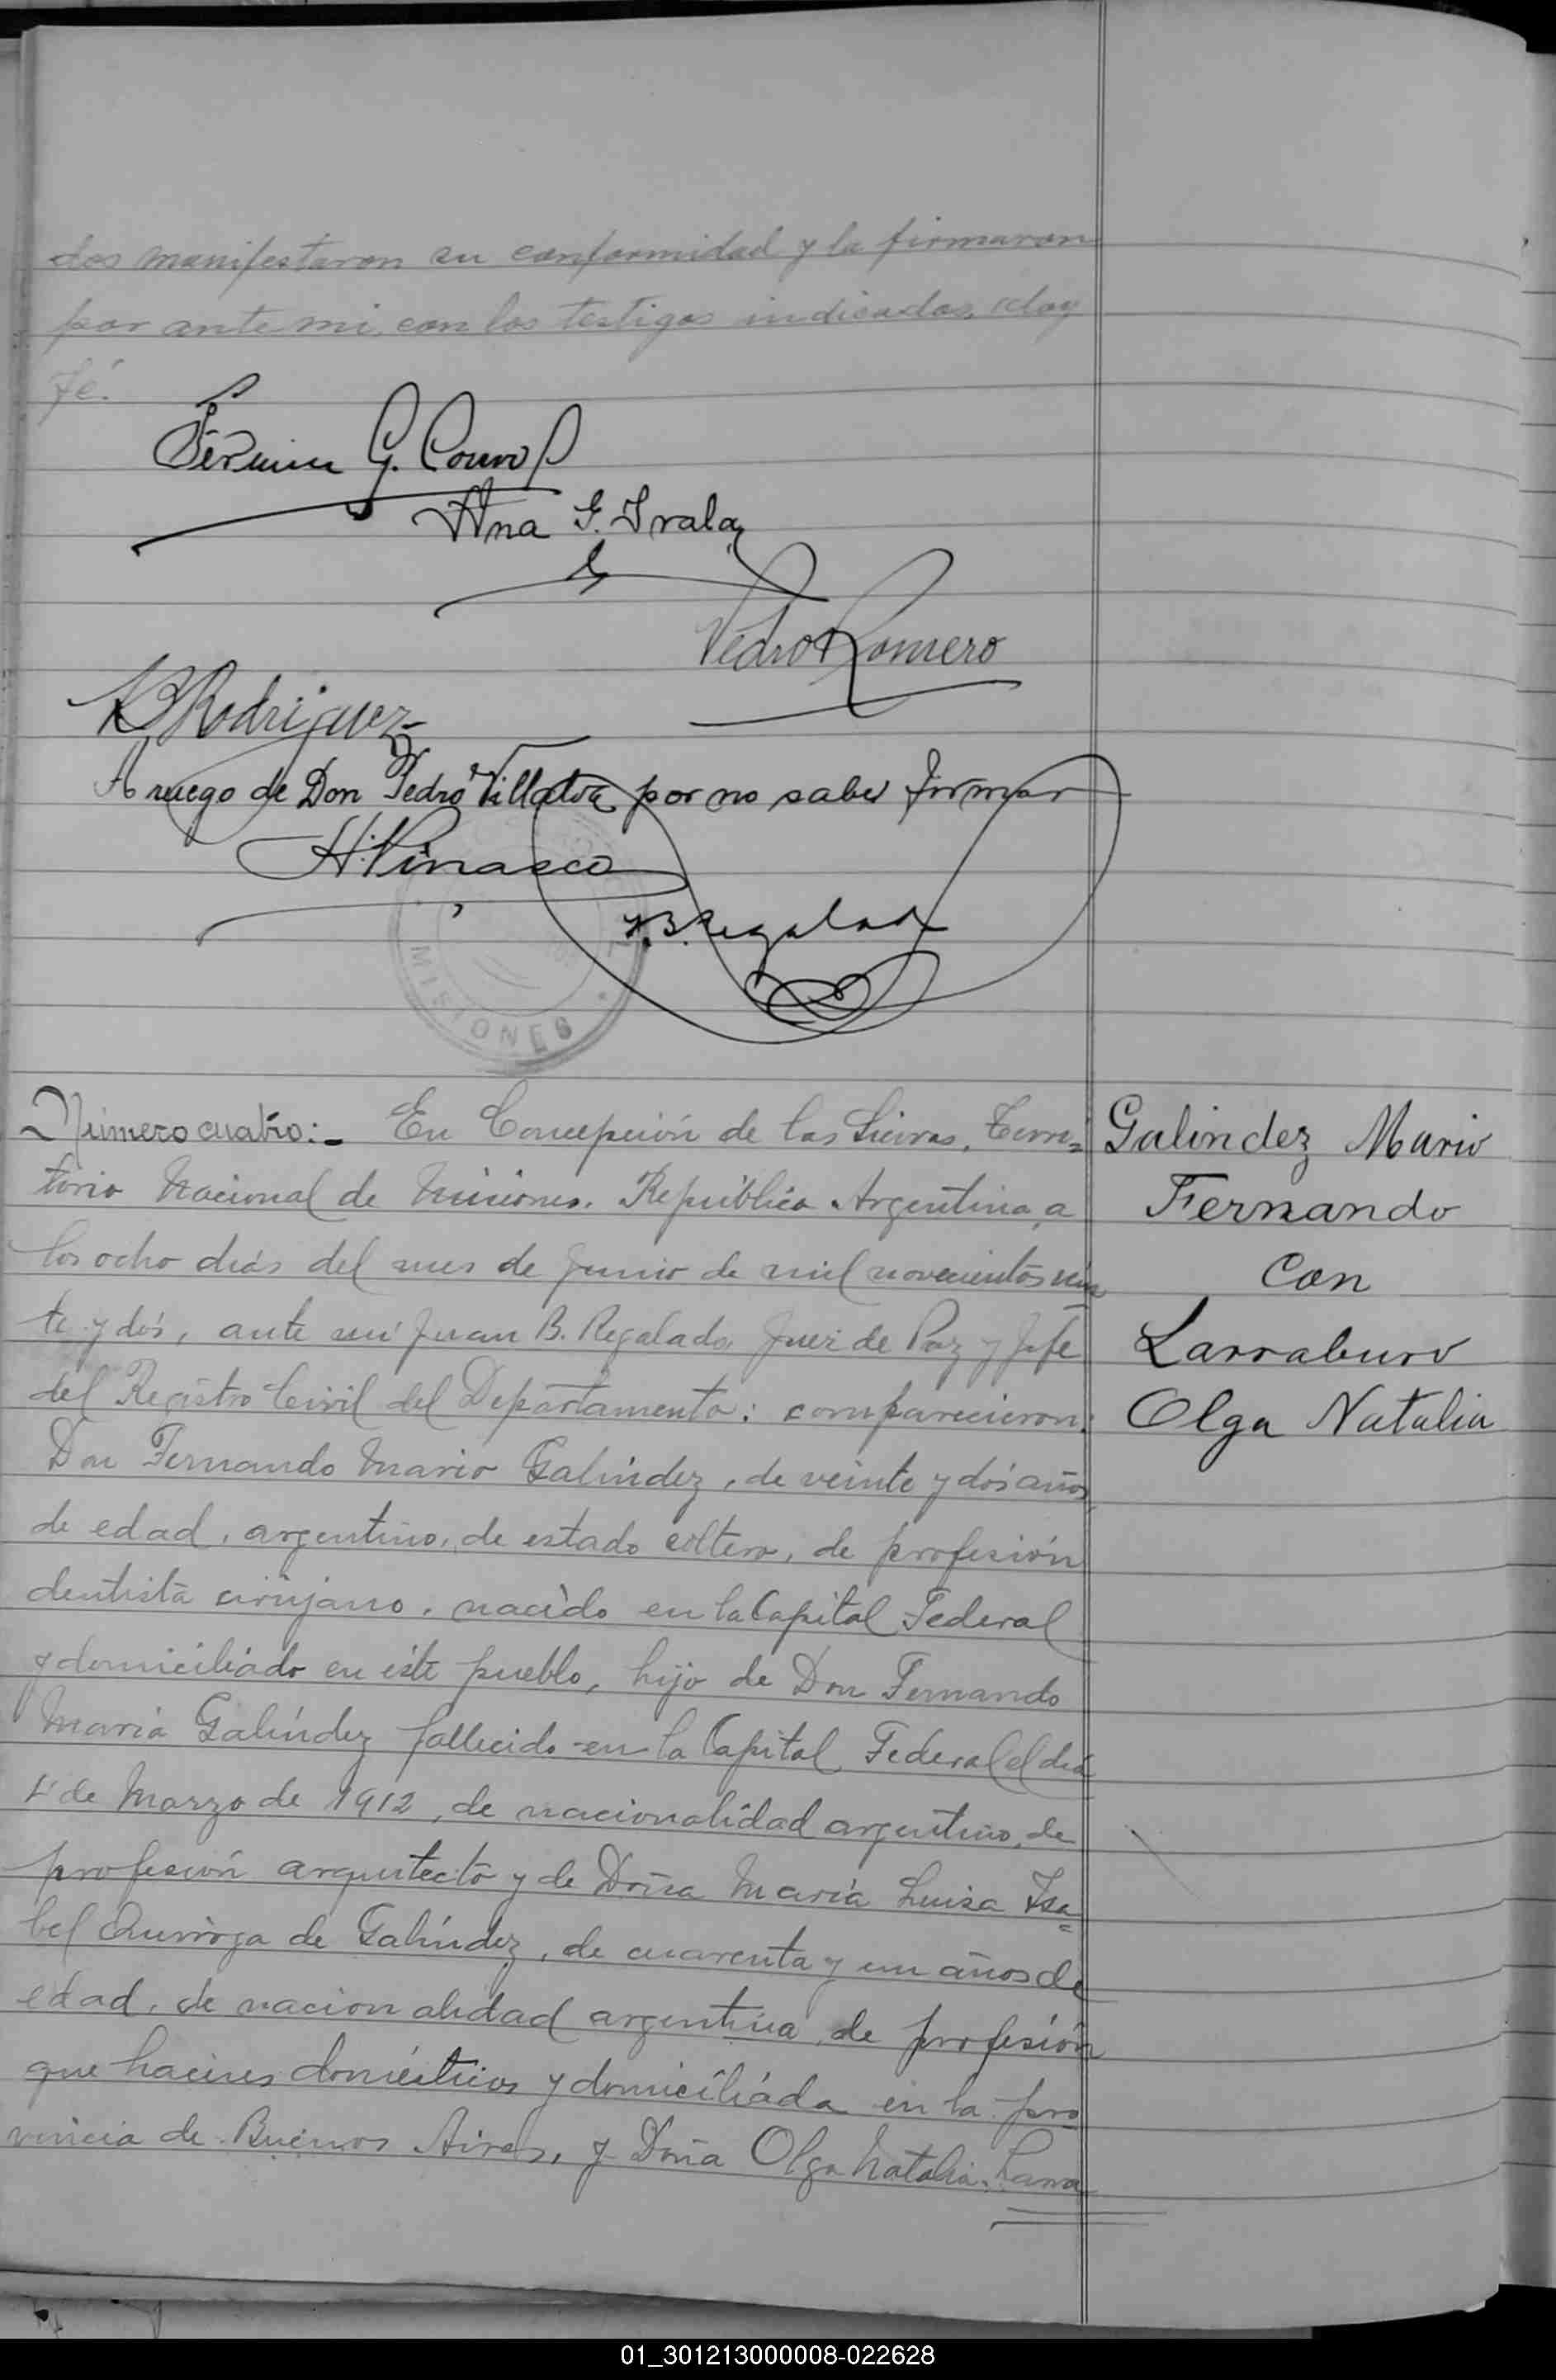 dos manifestaron su conformidad y la firmaron
por ante mi, con los testigos indicados, doy
fé.
Fermin G.
Ana G. Irala
Pedro Romero
B Rodriguez
A ruego de Don Pedro Villalva por no saber firmar
H. Pinasco
J.B. Regalado
MISIONES
Número cuatro:- En Concepción de las Sierras, Terri=
torio Nacional de Misiones. República Argentina, a
los ocho dias del mes de Junio de mil novecientos vein
te y dós, ante mi Juan B. Regalado Juez de Paz y Jefe
del Registro Civil del Departamento: comparecieron:
Don Fernando Mario Galíndez, de veinte y dós años
de edad, argentino, de estado soltero, de profesión
dentista cirujano, nacido en la Capital Federal
y domiciliado en éste pueblo, hijo de Don Fernando
María Galíndez fallecido en la Capital Federal el dia
de Marzo de 1912, de nacionalidad argentino, de
profesión arquitecto y de Doña María Luisa Isa=
bel Quiroga de Galíndez, de cuarenta y un años de
edad, de nacionalidad argentina, de profesión
que haceres domésticos y domiciliada en la pro
vincia de Buenos Aires, y Doña Olga Natalia Larra
Galindez Mario
Fernando
Con
Larraburo
Olga Natalia
01_301213000008-022628